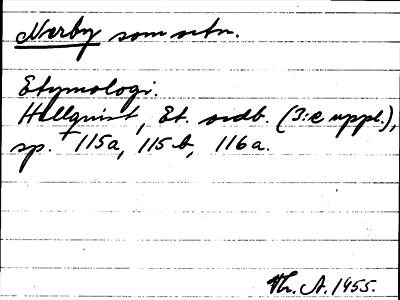 Nærby som ortn.
Etymologi.
Hellquist, Et. ordb. (3:e uppl.),
sp. 115a, 115b, 116a.
Th. A. 1955.